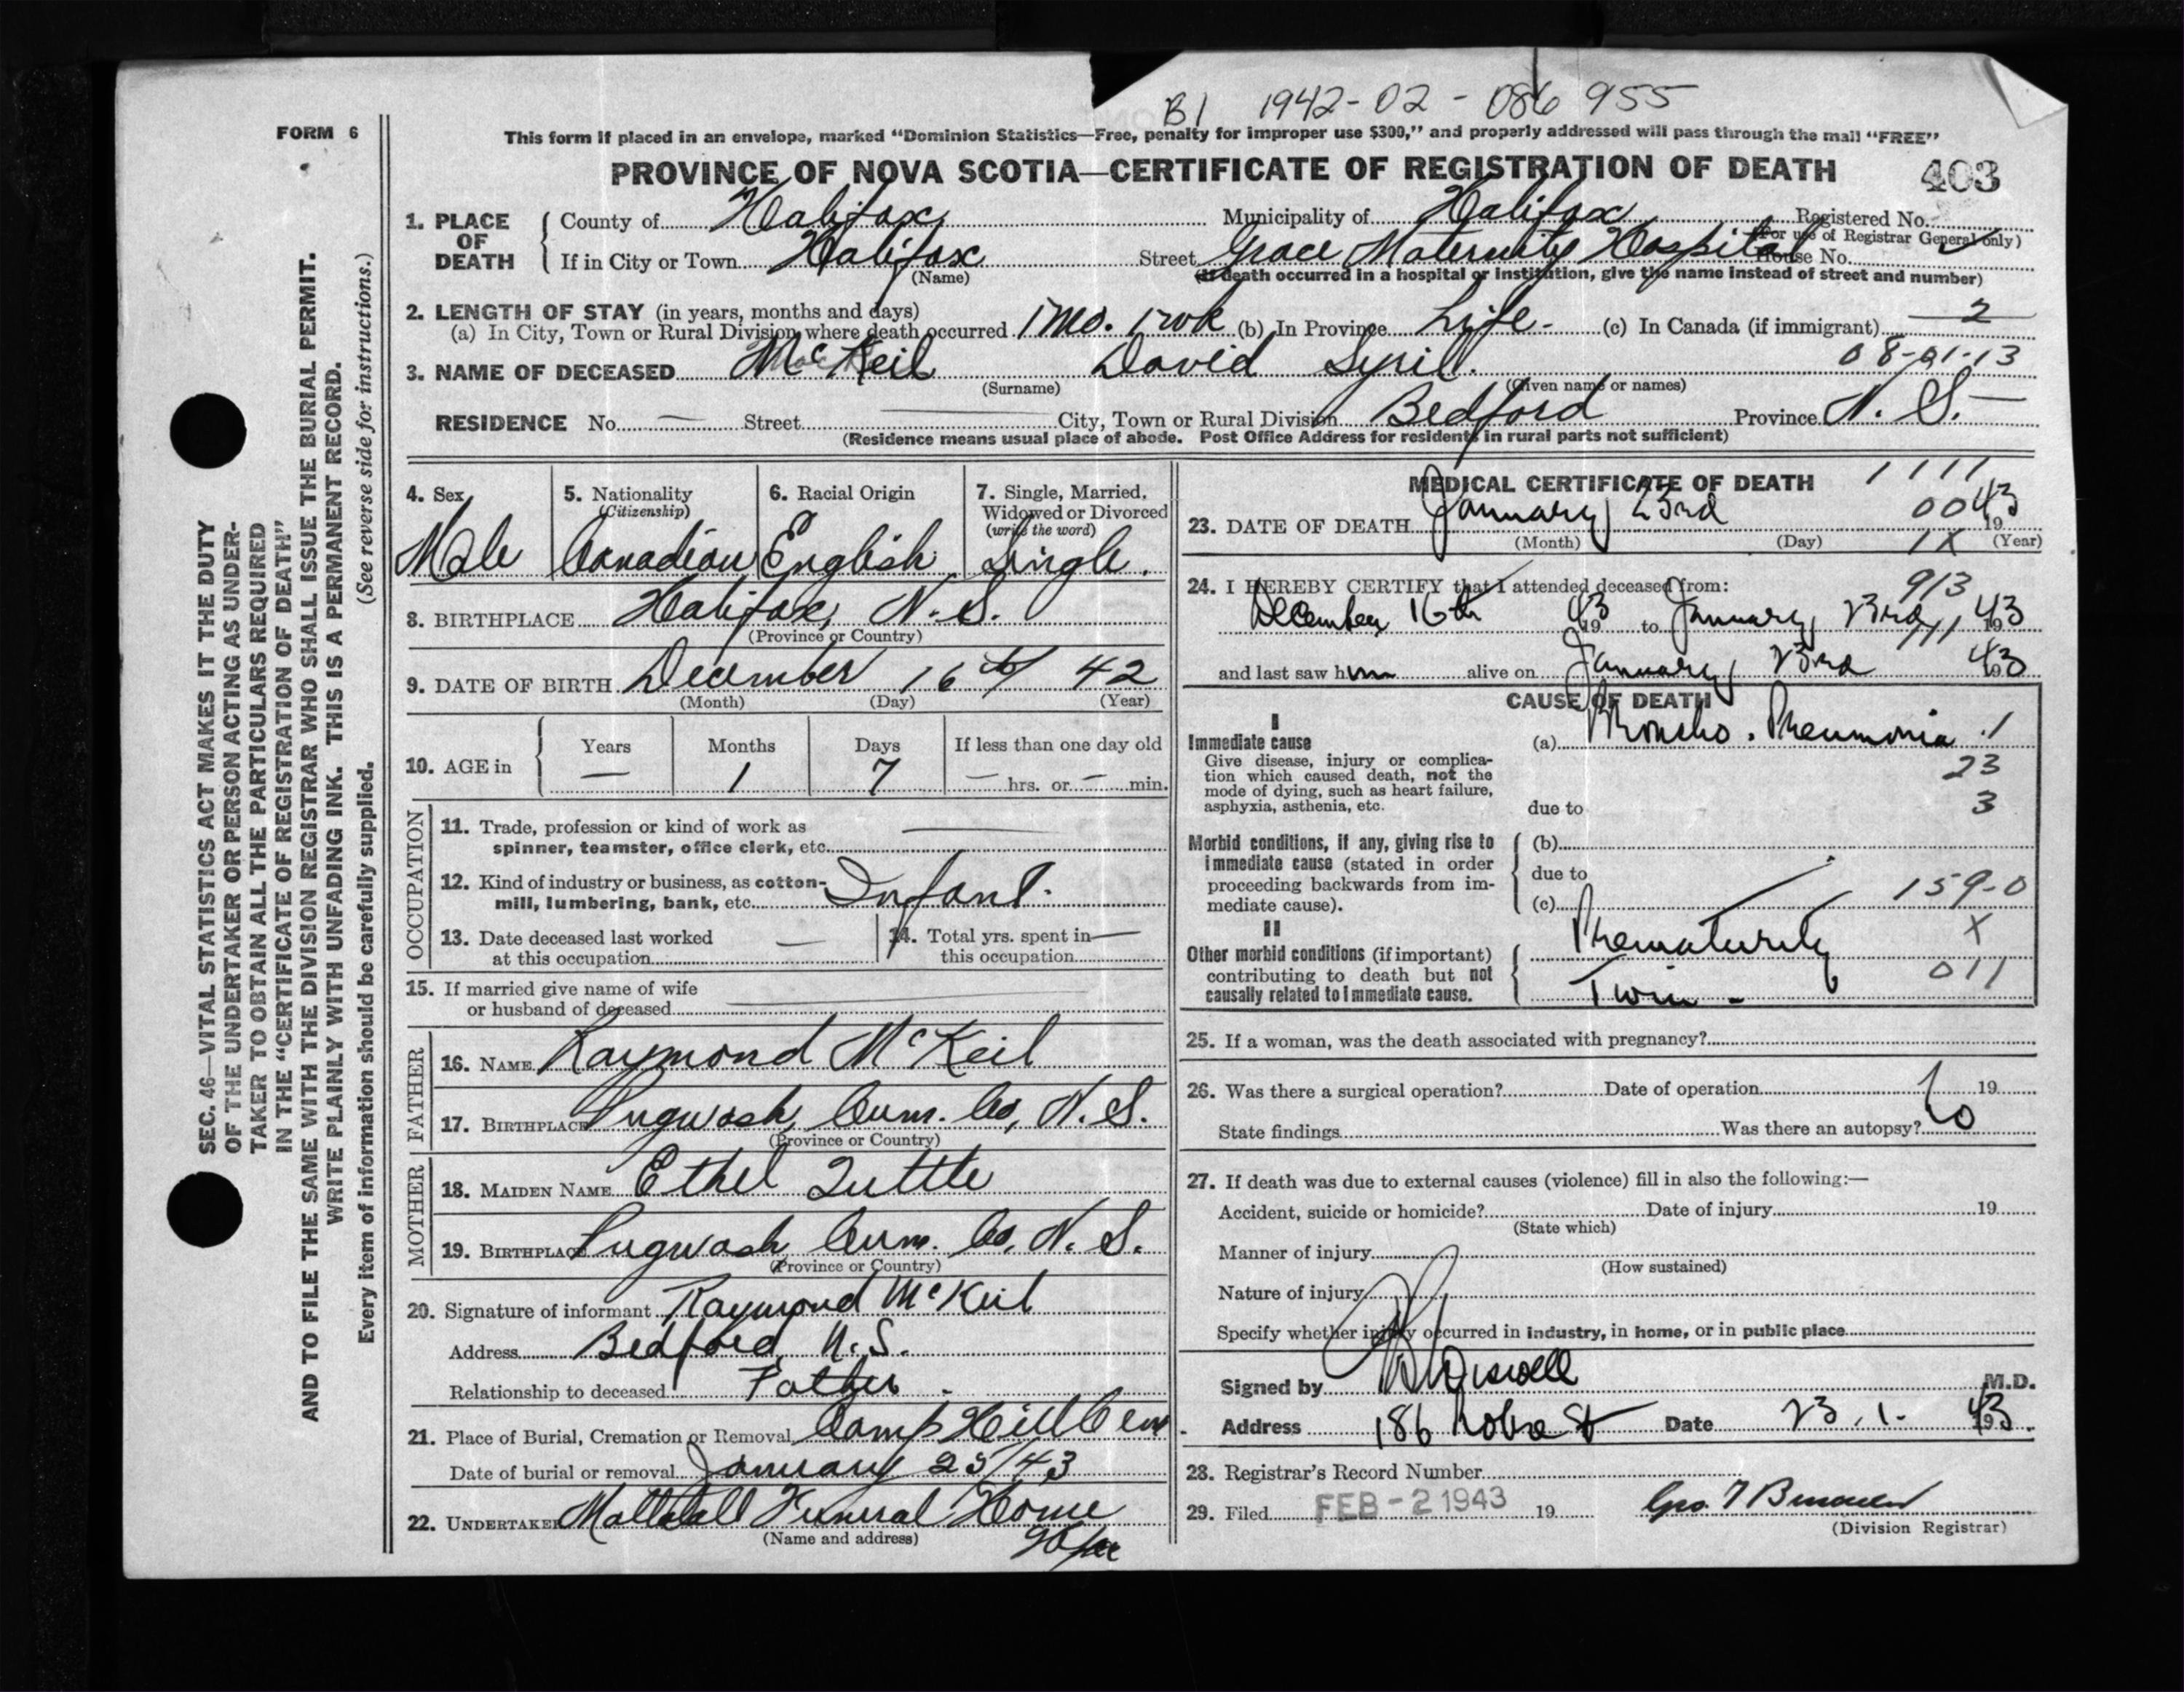 B1 1942-02-086955
FORM 6
This form if placed in an envelope, marked "Dominion Statistics—Free, penalty for improper use $300," and properly addressed will pass through the mail "FREE"
PROVINCE OF NOVA SCOTIA—CERTIFICATE OF REGISTRATION OF DEATH 403
1. PLACE OF DEATH
County of Halifax Municipality of Halifax Registered No.
(For use of Registrar General only)
If in City or Town Halifax Street Grace Maternity Hospital House No.
(Name) (If death occurred in a hospital or institution, give the name instead of street and number)
2. LENGTH OF STAY (in years, months and days)
(a) In City, Town or Rural Division where death occurred 1 mo. 1 wk (b) In Province Life - (c) In Canada (if immigrant) 2
08-01-13
3. NAME OF DECEASED McKeil David Syril.
(Surname) (Given name or names)
RESIDENCE No. — Street City, Town or Rural Division Bedford Province N. S.
(Residence means usual place of abode. Post Office Address for residents in rural parts not sufficient)
4. Sex 5. Nationality (Citizenship) 6. Racial Origin 7. Single, Married, Widowed or Divorced (write the word)
Male Canadian English Single.
8. BIRTHPLACE Halifax, N. S.
(Province or Country)
9. DATE OF BIRTH December 16th 42
(Month) (Day) (Year)
10. AGE in Years Months Days If less than one day old
— 1 7 — hrs. or — min.
OCCUPATION
11. Trade, profession or kind of work as
spinner, teamster, office clerk, etc.
12. Kind of industry or business, as cotton-
mill, lumbering, bank, etc. Infant.
13. Date deceased last worked
at this occupation —
14. Total yrs. spent in
this occupation —
15. If married give name of wife
or husband of deceased
FATHER
16. NAME Raymond McKeil
17. BIRTHPLACE Pugwash, Cum. Co, N. S.
(Province or Country)
MOTHER
18. MAIDEN NAME Ethel Tuttle
19. BIRTHPLACE Pugwash, Cum. Co, N. S.
(Province or Country)
20. Signature of informant Raymond McKeil
Address Bedford, N.S.
Relationship to deceased Father.
21. Place of Burial, Cremation or Removal Camp Hill Cem.
Date of burial or removal January 25/43
22. UNDERTAKER Mattatall Funeral Home
(Name and address) Hfx
MEDICAL CERTIFICATE OF DEATH 1111
23. DATE OF DEATH January 23rd 00 1943
(Month) (Day) 1X (Year)
24. I HEREBY CERTIFY that I attended deceased from: 913
December 16th 1943 to January 23rd 1943
111
and last saw him alive on January 23rd 1943
CAUSE OF DEATH
I
Immediate cause
Give disease, injury or complica-
tion which caused death, not the
mode of dying, such as heart failure,
asphyxia, asthenia, etc.
(a) Broncho. Pneumonia .1
23
due to 3
Morbid conditions, if any, giving rise to
immediate cause (stated in order
proceeding backwards from im-
mediate cause).
(b)
due to
(c) 159-0
II
Other morbid conditions (if important)
contributing to death but not
causally related to immediate cause.
Prematurity X
Twin - 011
25. If a woman, was the death associated with pregnancy?
26. Was there a surgical operation? Date of operation 19
State findings Was there an autopsy? No
27. If death was due to external causes (violence) fill in also the following:—
Accident, suicide or homicide? Date of injury 19
(State which)
Manner of injury
(How sustained)
Nature of injury
Specify whether injury occurred in industry, in home, or in public place
Signed by M.D.
Address 186 St Date 23.1. 1943.
28. Registrar's Record Number
29. Filed FEB-2 1943 19
(Division Registrar)
SEC. 46—VITAL STATISTICS ACT MAKES IT THE DUTY
OF THE UNDERTAKER OR PERSON ACTING AS UNDER-
TAKER TO OBTAIN ALL THE PARTICULARS REQUIRED
IN THE "CERTIFICATE OF REGISTRATION OF DEATH"
AND TO FILE THE SAME WITH THE DIVISION REGISTRAR WHO SHALL ISSUE THE BURIAL PERMIT.
WRITE PLAINLY WITH UNFADING INK. THIS IS A PERMANENT RECORD.
Every item of information should be carefully supplied. (See reverse side for instructions.)